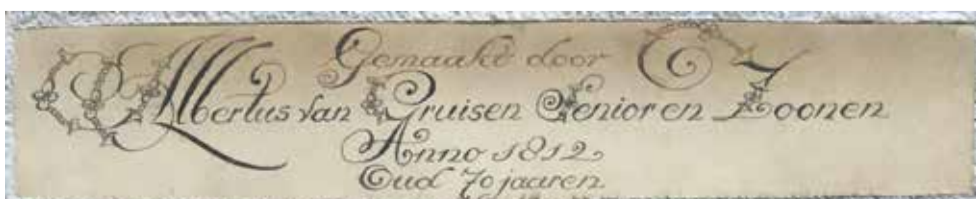 Gemaakt door
Albertus van Gruisen Senior en Zoonen
Anno 1812
Oud 70 jaaren